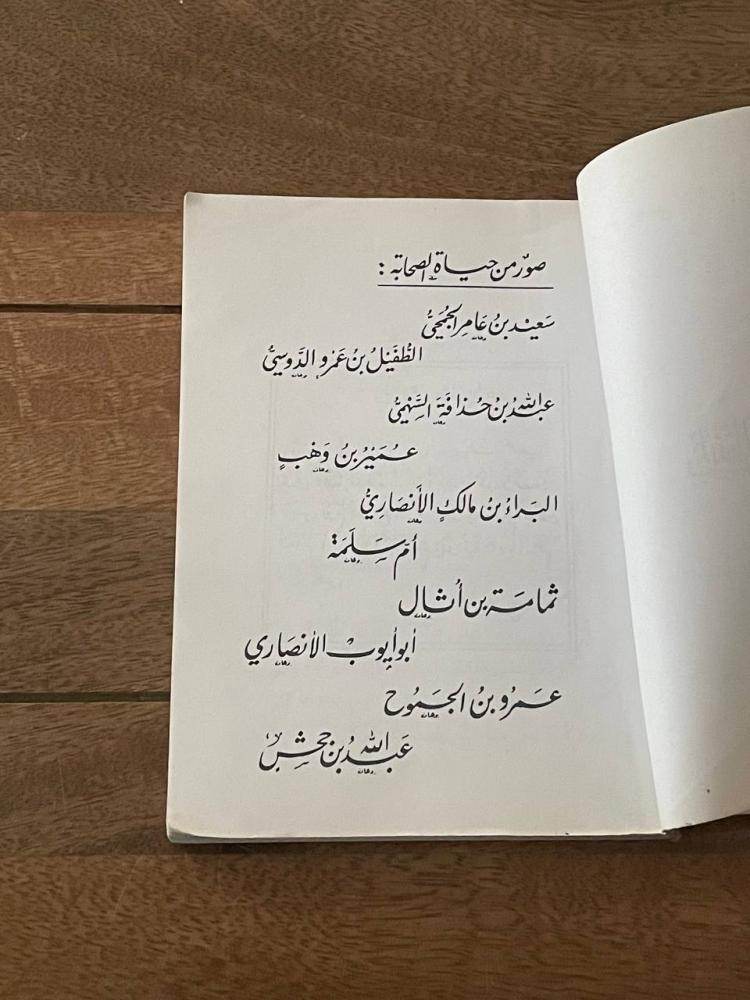 صور من حياة الصحابة :
سَعيْد بنُ عَامِر الجُمَحِيُّ
الطُّفَيْلُ بنُ عَمْرو الدَّوسِيُّ
عبدُ اللهِ بنُ حُذافَةَ السَّهْمِيُّ
عُمَيْرُ بنُ وَهْبٍ
البَراءُ بنُ مالكٍ الأَنصَارِيُّ
أمّ سَلَمَة
ثمامَة بن أُثال
أبو أيوب الأنصَاري
عَمرُو بنُ الجَمُوح
عَبدُ اللهِ بنُ جَحْشٍ